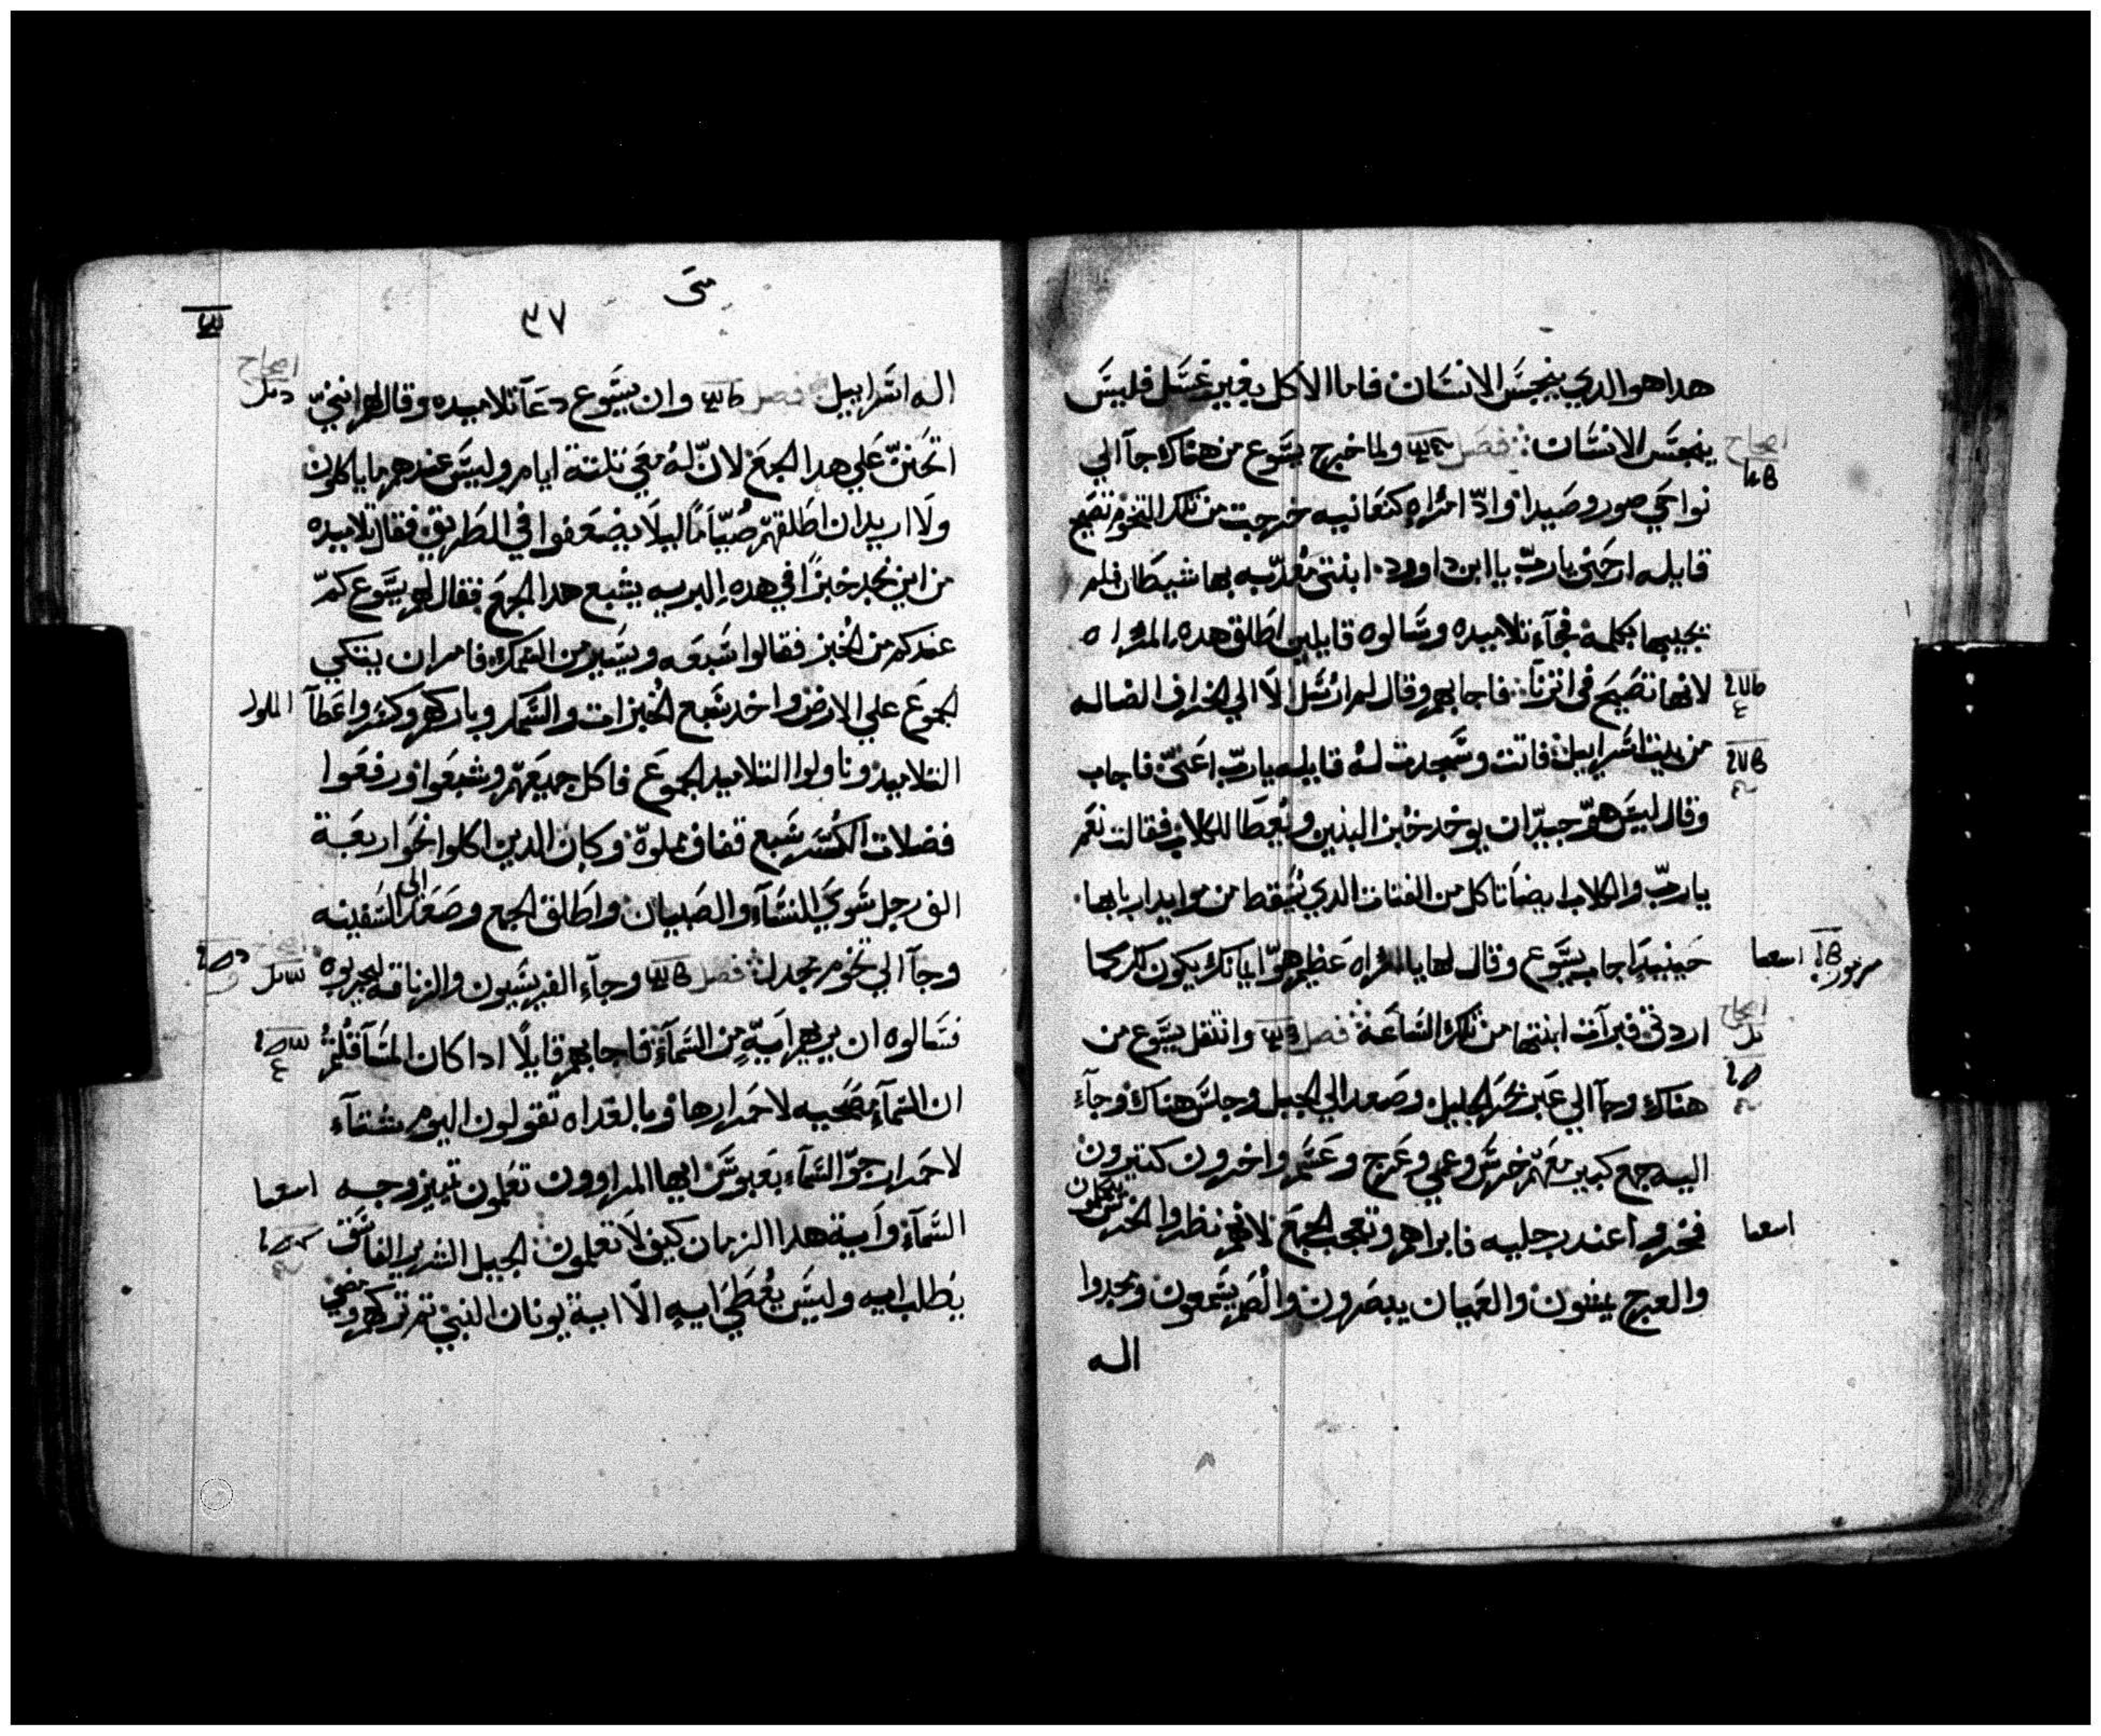 هدا هو الدي ينجس الانسان فاما الاكل بغير غسل فليس
ينجس الانسان فصل ولما خرج يسوع من هناك جآ الي
نواحي صور وصيدا واد امراه كنعانيه خرجت من تلك التخوم تصيح
قايله ارحمني يارب يا ابن داوود ابنتي معدبه بها شيطان فلم
يجيبها بكلمة فجآء تلاميده وسالوه قايلين اطلق هده المراه
لانها تصيح في اترنا فاجابهم وقال لم ارسل الا الي الخراف الضاله
من بيت اسراييل فاتت وسجدت له قايله يارب اعني فاجاب
وقال ليس هو جيد ان يوخد خبز البنين ويعطا للكلاب فقالت نعم
يارب والكلاب ايضا تاكل من الفتات الدي يسقط من موايد اربابها
حينيد اجاب يسوع وقال لها يا امراه عظيم هو ايمانك يكون لك كما
اردتي فبرات ابنتها من تلك الساعة فصل وانتقل يسوع من
هناك وجآ الي عبر بحر الجليل وصعد الي الجبل وجلس هناك وجآء
اليه جمع كبير معهم خرس وعمي وعرج وعسم واخرون كتيرون
فخروا عند رجليه فابراهم وتعجب الجمع لانهم نظروا الخرس يتكلمون
والعرج يمشون والعميان يبصرون والصم يسمعون ومجدوا
اله
اصحاح
اسعيا
اصحاح
اسعيا
متى
٣٧
اله اسراييل فصل وان يسوع دعآ تلاميده وقال لهم انني
اتحنن علي هدا الجمع لان له معي تلتة ايام وليس عندهم ما ياكلون
ولا اريد ان اطلقهم صياما ليلا يضعفوا في الطريق فقال تلاميده
من اين نجد خبزا في هده البريه يشبع هدا الجمع فقال لهم يسوع كم
عندكم من الخبز فقالوا سبعه ويسير من السمك فامر ان يتكي
الجموع علي الارض واخد سبع الخبزات والسمك وباركهم وكسر واعطآ
التلاميد وناولوا التلاميد الجموع فاكل جميعهم وشبعوا ورفعوا
فضلات الكسر سبع قفاف مملوة وكان الدين اكلوا نحو اربعة
الف رجل سوي النسآء والصبيان واطلق الجمع وصعد الى السفينه
وجآ الي تخوم مجدل فصل وجآء الفريسيون والزنادقه ليجربوه
فسالوه ان يريهم اية من السمآء فاجابهم قايلا ادا كان المسآ قلتم
ان السمآء مصحيه لاحمرارها وبالغداه تقولون اليوم شتآء
لاحمرار جو السمآء بعبوس ايها المراوون تعلمون تمييز وجه
السمآء واية هدا الزمان كيف لا تعلمون الجيل الشرير الفاسق
يطلب ايه وليس يعطي ايه الا اية يونان النبي تم تركهم ومضي
اصحاح
الملوك
اسعيا